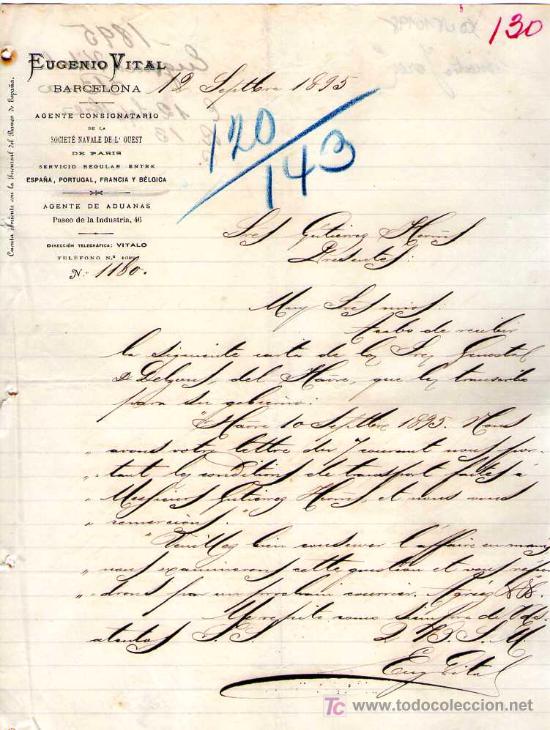 130
EUGENIO VITAL
BARCELONA
12 Septbre 1895
AGENTE CONSIGNATARIO
DE LA
SOCIETÉ NAVALE DE L'OUEST
DE PARIS
SERVICIO REGULAR ENTRE
ESPAÑA, PORTUGAL, FRANCIA Y BÉLGICA
AGENTE DE ADUANAS
Paseo de la Industria, 46
DIRECCIÓN TELEGRÁFICA: VITALO
TELÉFONO N.º
N.º 1180.
Cuenta abierta con la Sucursal del Banco de España.
120
143
Sres Gutierez Herms
Presentes:
Muy Sres mios:
Acabo de recibir
la siguiente carta de los Sres
del Havre, que les transcribo
para su gobierno:
"Havre 10 Septbre 1895. Nous
" avons votre lettre du 7 courant nous por-
" tant les conditions de transport faites à
" Messieurs Gutierez Herms, et nous vous
" remercions.
"Veuillez bien conserver l'affaire en mains
" nous examinerons cette question et vous repon-
" drons par un prochain courrier. Agréez
Me repito como siempre de Vds.
atento S. S.
Q. B. S. M.
Eug Vital
TC www.todocoleccion.net